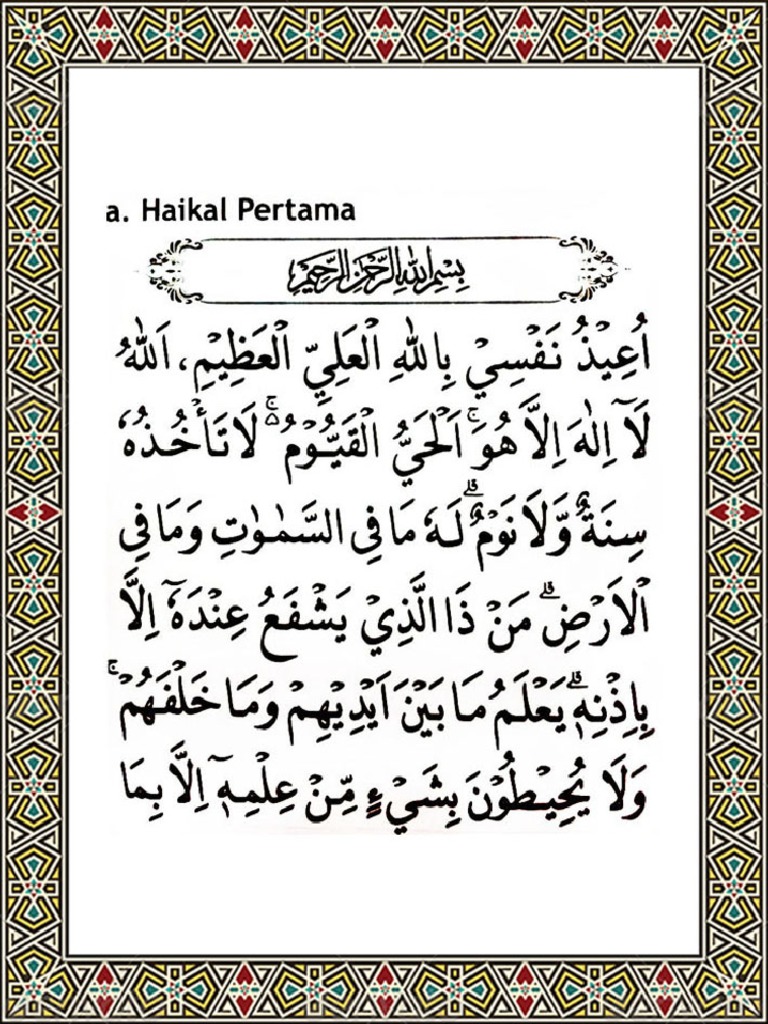 a. Haikal Pertama
بِسْمِ اللهِ الرَّحْمٰنِ الرَّحِيْمِ
اُعِيْذُ نَفْسِيْ بِاللهِ الْعَلِيِّ الْعَظِيْمِ، اَللهُ
لَآ اِلٰهَ اِلَّا هُوَۚ اَلْحَيُّ الْقَيُّوْمُ ەۚ لَا تَأْخُذُهٗ
سِنَةٌ وَّلَا نَوْمٌۗ لَهٗ مَا فِى السَّمٰوٰتِ وَمَا فِى
الْاَرْضِۗ مَنْ ذَا الَّذِيْ يَشْفَعُ عِنْدَهٗٓ اِلَّا
بِاِذْنِهٖۗ يَعْلَمُ مَا بَيْنَ اَيْدِيْهِمْ وَمَا خَلْفَهُمْۚ
وَلَا يُحِيْطُوْنَ بِشَيْءٍ مِّنْ عِلْمِهٖٓ اِلَّا بِمَا